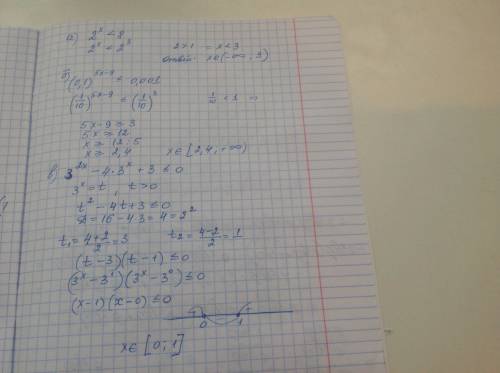 а) 2^x < 8
2^x < 2^3     2 > 1 ⇒ x < 3
Ответ: x∈(-∞; 3)
б) (0,1)^(5x-9) ≤ 0,001
(1/10)^(5x-9) ≤ (1/10)^3     1/10 < 1 ⇒
5x-9 ≥ 3
5x ≥ 12
x ≥ 12:5
x ≥ 2,4     x∈[2,4; +∞)
в) 3^(2x) - 4·3^x + 3 ≤ 0
3^x = t, t>0
t² - 4t + 3 ≤ 0
D = 16 - 4·3 = 4 = 2²
t₁ = (4+2)/2 = 3     t₂ = (4-2)/2 = 1
(t-3)(t-1) ≤ 0
(3^x - 3^1)(3^x - 3^0) ≤ 0
(x-1)(x-0) ≤ 0
+ - +
0 1
x∈[0; 1]